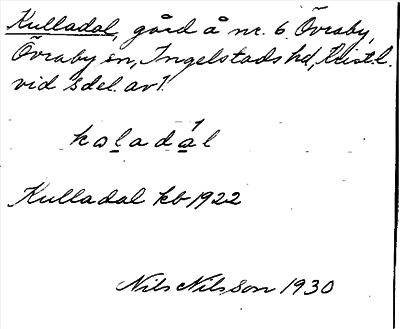 Kulladal, gård å nr. 6 Övraby,
Övraby sn, Ingelstads hd, Krist.l.
vid sdel. av 1.
koladál
Kulladal kb 1922
Nils Nilsson 1930